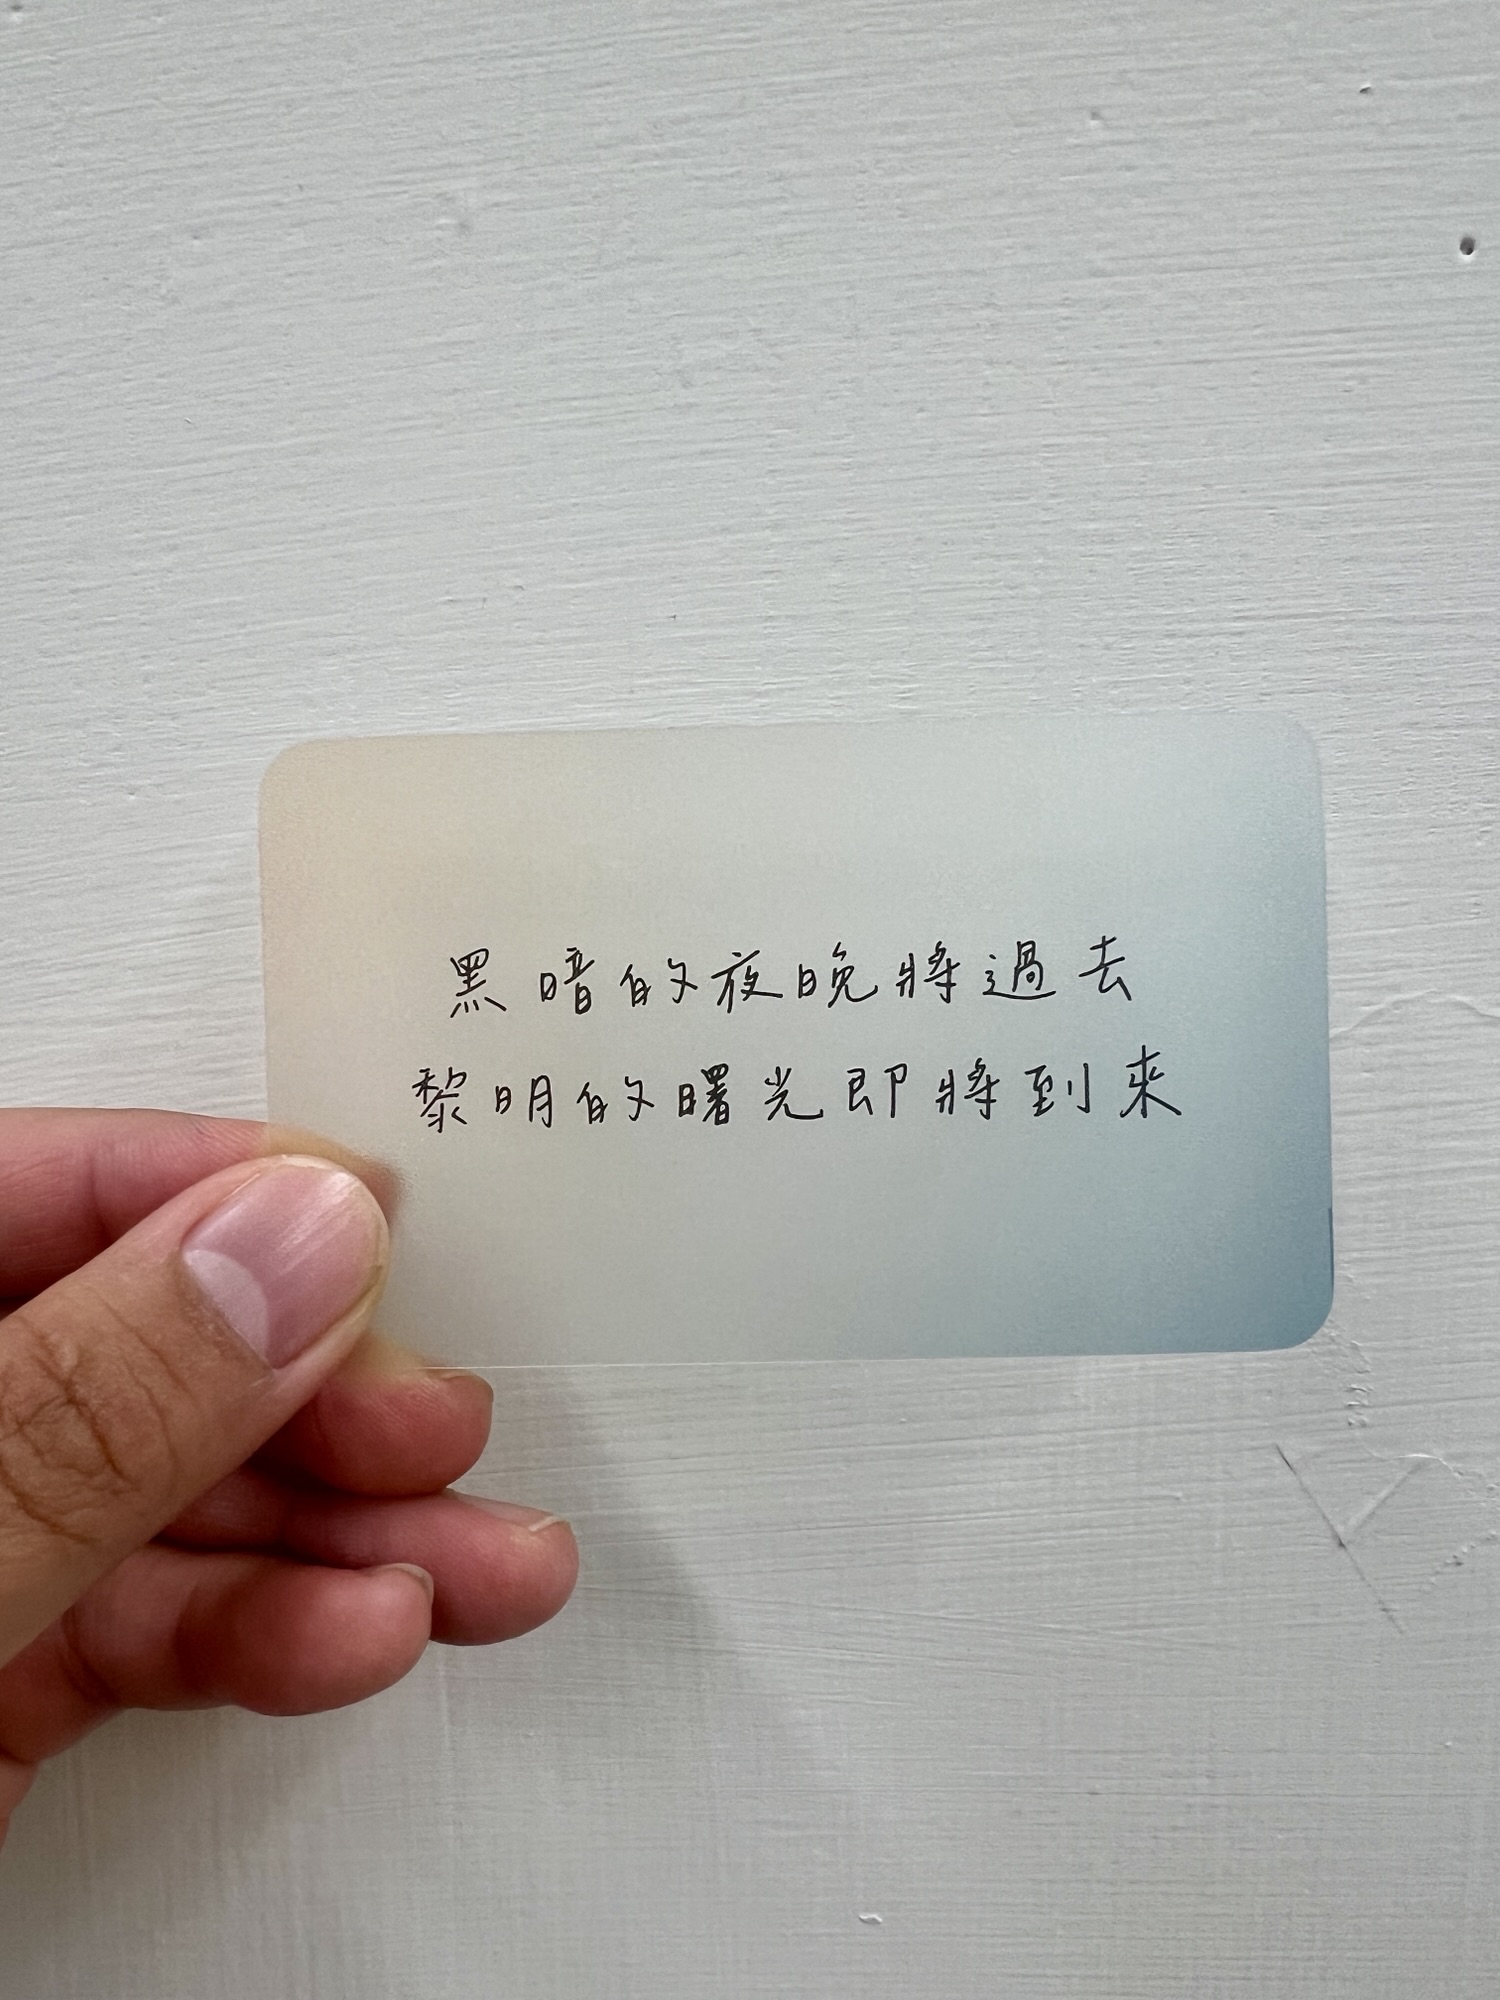 黑暗的夜晚將過去
黎明的曙光即將到來